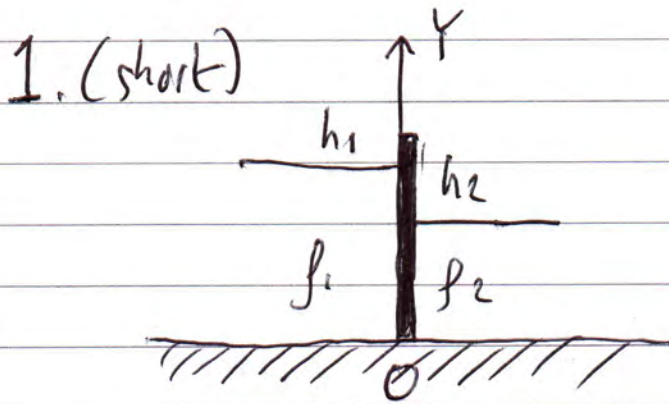 1. (short)
Y
h1
h2
ρ1 ρ2
O